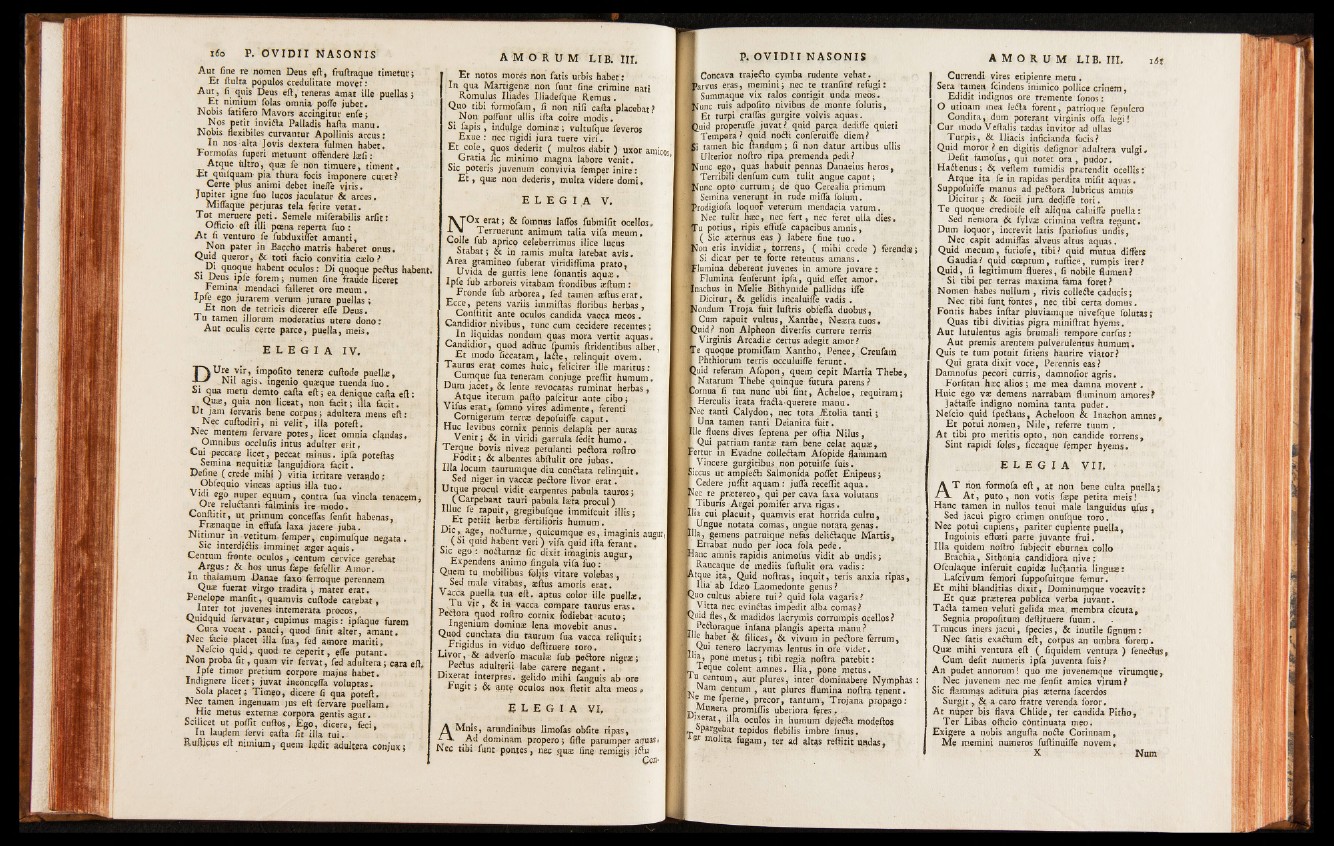 160 P. OVIDII NASONIS
Aut ſine re nomen Deus eſt, fruſtraque timetur;
Et ſtulta populos credulitate movet:
Aut, ſi quis Deus eſt, teneras amat ille puellas;
Et nimium ſolas omnia poſſe jubet.
Nobis fatifero Mavors accingitur enſe;
Nos petit invicta Palladis haſta manu.
Nobis flexibiles curvantur Apollinis arcus:
In nos alta Jovis dextera fulmen habet.
Formoſas ſuperi metuunt offendere læſi:
Atque ultro, quæ ſe non timuere, timent.
Et quiſquam pia thura focis imponere curet?
Certe plus animi debet ineſſe viris.
Jupiter igne ſuo lucos jaculatur & arces.
Miſſaque perjuras tela ferire vetat.
Tot meruere peti. Semele miſerabilis arſit:
Officio eſt illi pœna reperta ſuo:
At ſi venturo ſe ſubduxiſſet amanti,
Non pater in Baccho matris haberet onus.
Quid queror, & toti facio convitia cælo?
Di quoque habent oculos: Di quoque pectus habent.
Si Deus ipſe forem; numen ſine fraude liceret
Femina mendaci falleret ore meum.
Ipſe ego jurarem verum jurare puellas;
Et non de tetricis dicerer eſſe Deus.
Tu tamen illorum moderatius utere dono:
Aut oculis certe parce, puella, meis.
ELEGIA IV.
DUre vir, impoſito teneræ cuſtode puellæ,
Nil agis. ingenio quæque tuenda ſuo.
Si qua metu demto caſta eſt; ea denique caſta eſt:
Quæ, quia non liceat, non facit; illa facit.
Ut jam ſervaris bene corpus; adultera mens eſt:
Nec cuſtodiri, ni velit, illa poteſt.
Nec mentem ſervare potes, licet omnia claudas.
Omnibus occluſis intus adulter erit.
Cui peccare licet, peccat minus. ipſa poteſtas
Semina nequitiæ languidiora facit.
Deſine (crede mihi) vitia irritare vetando:
Obſequio vincas aptius illa tuo.
Vidi ego nuper equum, contra ſua vincla tenacem,
Ore reluctanti fulminis ire modo.
Conſtitit, ut primum conceſſas ſenſit habenas,
Frænaque in effuſa laxa jacere juba.
Nitimur in vetitum ſemper, cupimuſque negata.
Sic interdictis imminet æger aquis.
Centum fronte oculos, centum cervice gerebat
Argus: & hos unus ſæpe fefellit Amor.
In thalamum Danae ſaxo ferroque perennem
Quæ fuerat virgo tradita; mater erat.
Penelope manſit, quamvis cuſtode carebat,
Inter tot juvenes intemerata procos.
Quidquid ſervatur, cupimus magis: ipſaque furem
Cura vocat. pauci, quod ſinit alter, amant.
Nec facie placet illa ſua, ſed amore mariti,
Neſcio quid, quod te ceperit, eſſe putant.
Non proba fit, quam vir ſervat, ſed adultera; cara eſt,
Ipſe timor pretium corpore majus habet.
Indignere licet; juvat inconceſſa voluptas.
Sola placet; Timeo, dicere ſi qua poteſt.
Nec tamen ingenuam jus eſt ſervare puellam.
Hic metus externæ corpora gentis agat.
Scilicet ut poſſit cuſtos, Ego, dicere, feci,
In laudem ſervi caſta ſit illa tui.
Ruſticus eſt nimium, quem lædit adultera conjux;
AMORUM LIB. III.
Et notos mores non ſatis urbis habet:
In qua Martigenæ non ſunt ſine crimine nati
Romulus Iliades Iliadeſque Remus.
Quo tibi formoſam, ſi non niſi caſta placebat?
Non poſſunt ullis iſta coire modis.
Si ſapis, indulge dominæ; vultuſque ſeveros
Exue: nec rigidi jura tuere viri.
Et cole, quos dederit (multos dabit) uxor amicos.
Gratia ſic minimo magna labore venit.
Sic poteris juvenum convivia ſemper inire:
Et, quæ non dederis, multa videre domi.
ELEGIA V.
NOx erat; & ſomnus laſſos ſubmiſit ocellos.
Terruerunt animum talia viſa meum.
Colle ſub aprico celeberrimus ilice lucus
Stabat; & in ramis multa latebat avis.
Area gramineo ſuberat viridiſſima prato,
Uvida de guttis lene ſonantis aquæ.
Ipſe ſub arboreis vitabam frondibus æſtum:
Fronde ſub arborea, ſed tamen æſtus erat.
Ecce, petens variis immiſtas floribus herbas,
Conſtitit ante oculos candida vacca meos.
Candidior nivibus, tunc cum cecidere recentes;
In liquidas nondum quas mora vertit aquas.
Candidior, quod adhuc ſpumis ſtridentibus albet,
Et modo ſiccatam, lacte, relinquit ovem.
Taurus erat comes huic, feliciter ille maritus:
Cumque ſua teneram conjuge preſſit humum.
Dum jacet, & lente revocatas ruminat herbas,
Atque iterum paſto paſcitur ante cibo;
Viſus erat, ſomno vires adimente, ferenti
Cornigerum terræ depoſuiſſe caput.
Huc levibus cornix pennis delapſa per auras
Venit; & in viridi garrula ſedit humo.
Terque bovis niveæ petulanti pectora roſtro
Fodit; & albentes abſtulit ore jubas.
Illa locum taurumque diu cunctata relinquit.
Sed niger in vaccæ pectore livor erat.
Utque procul vidit carpentes pabula tauros;
(Carpebant tauri pabula læta procul)
Illuc ſe rapuit, gregibuſque immiſcuit illis;
Et petiit herbæ fertilioris humum.
Dic, age, nocturnæ, quicumque es, imaginis augur,
(Si quid habent veri) viſa quid iſta ferant.
Sic ego: nocturnæ ſic dixit imaginis augur,
Expendens animo ſingula viſa ſuo:
Quem tu mobilibus foliis vitare volebas,
Sed male vitabas, æſtus amoris erat.
Vacca puella tua eſt. aptus color ille puellæ.
Tu vir, & in vacca compare taurus eras.
Pectora quod roſtro cornix fodiebat acuto;
Ingenium dominæ lena movebit anus.
Quod cunctata diu taurum ſua vacca reliquit;
Frigidus in viduo deſtituere toro.
Livor, & adverſo maculæ ſub pectore nigræ;
Pectus adulterii labe carere negant.
Dixerat interpres. gelido mihi ſanguis ab ore
Fugit; & ante oculos nox ſtetit alta meos.
ELEGIA VI.
AMnis, arundinibus limoſas obſite ripas,
Ad dominam propero; ſiſte parumper aquas.
Nec tibi ſunt pontes, nec quæ ſine remigis ictu
Con-
P. OVIDII NASONIS
Concava trajecto cymba rudente vehat.
Parvus eras, memini; nec te tranſire refugi:
Summaque vix talos contigit unda meos.
Nunc ruis adpoſito nivibus de monte ſolutis,
Et turpi craſſas gurgite volvis aquas.
Quid properaſſe juvat? quid parca dediſſe quieti
Tempora? quid nocti conſeruiſſe diem?
Si tamen hic ſtandum; ſi non datur artibus ullis
Ulterior noſtro ripa premenda pedi?
Nunc ego, quas habuit pennas Danaeius heros,
Terribili denſum cum tulit angue caput;
Nunc opto currum; de quo Cerealia primum
Semina venerunt in rude miſſa ſolum.
Prodigioſa loquor veterum mendacia vatum.
Nec tulit hæc, nec fert, nec feret ulla dies.
Tu potius, ripis effuſe capacibus amnis,
(Sic æternus eas) labere fine tuo.
Non eris invidiæ, torrens, (mihi crede) ferendæ;
Si dicar per te forte retentus amans.
Flumina deberent juvenes in amore juvare:
Flumina ſenſerunt ipſa, quid eſſet amor.
Inachus in Melie Bithynide pallidus iſſe
Dicitur, & gelidis incaluiſſe vadis.
Nondum Troja fuit luſtris obſeſſa duobus,
Cum rapuit vultus, Xanthe, Neæra tuos.
Quid? non Alpheon diverſis currere terris
Virginis Arcadiæ certus adegit amor?
Te quoque promiſſam Xantho, Penee, Creuſam
Phthiorum terris occuluiſſe ferunt.
Quid referam Aſopon, quem cepit Martia Thebe,
Natarum Thebe quinque futura parens?
Cornua ſi tua nunc ubi ſint, Acheloe, requiram;
Herculis irata fracta quetere manu.
Nec tanti Calydon, nec tota Ætolia tanti;
Una tamen tanti Deianira fuit.
Ille fluens dives ſeptena per oſtia Nilus,
Qui patriam tantæ tam bene celat aquæ,
Fertur in Evadne collectam Aſopide flammam
Vincere gurgitibus non potuiſſe ſuis.
Siccus ut amplecti Salmonida poſſet Enipeus;
Cedere juſſit aquam: juſſa receſſit aqua.
Nec te prætereo, qui per cava ſaxa volutans
Tiburis Argei pomifer arva rigas.
Ilia cui placuit, quamvis erat horrida cultu,
Ungue notata comas, ungue notata genas.
Illa, gemens patruique nefas delictaque Martis,
Errabat nudo per loca ſola pede.
Hanc amnis rapidis animoſus vidit ab undis;
Raucaque de mediis ſuſtulit ora vadis:
Atque ita, Quid noſtras, inquit, teris anxia ripas,
Ilia ab Idæo Laomedonte genus?
Quo cultus abiere tui? quid ſola vagaris?
Vitta nec evinctas impedit alba comas?
Quid fles, & madidos lacrymis corrumpis ocellos?
Pectoraque inſana plangis aperta manu?
Ille habet & ſilices, & vivum in pectore ferrum,
Qui tenero lacrymas lentus in ore videt.
Ilia, pone metus; tibi regia noſtra patebit:
Teque colent amnes. Ilia, pone metus.
Tu centum, aut plures, inter dominabere Nymphas:
Nam centum, aut plures flumina noſtra tenent.
Ne me ſperne, precor, tantum, Trojana propago:
Munera promiſſis uberiora feres.
Dixerat, illa oculos in humum dejecta modeſtos
Spargebat tepidos flebilis imbre ſinus.
Ter molita fugam, ter ad altas reſtitit undas,
AMORUM LIB. III. 161
Currendi vires eripiente metu.
Sera tamen ſcindens inimico pollice crinem,
Edidit indignos ore tremente ſonos:
O utinam mea lecta forent, patrioque ſepulcro
Condita, dum poterant virginis oſſa legi!
Cur modo Veſtalis tædas invitor ad ullas
Turpis, & Iliacis inficianda focis?
Quid moror? en digitis deſignor adultera vulgi.
Deſit famoſus, qui notet ora, pudor.
Hactenus; & veſtem tumidis prætendit ocellis:
Atque ita ſe in rapidas perdita miſit aquas.
Suppoſuiſſe manus ad pectora lubricus amnis
Dicitur; & ſocii jura dediſſe tori.
Te quoque credibile eſt aliqua caluiſſe puella:
Sed nemora & ſylvæ crimina veſtra tegunt.
Dum loquor, increvit latis ſpatioſius undis,
Nec capit admiſſas alveus altus aquas.
Quid mecum, furioſe, tibi? quid mutua differs
Gaudia? quid cœptum, ruſtice, rumpis iter?
Quid, ſi legitimum flueres, ſi nobile flumen?
Si tibi per terras maxima fama foret?
Nomen habes nullum, rivis collecte caducis;
Nec tibi ſunt fontes, nec tibi certa domus.
Fontis habes inſtar pluviamque niveſque ſolutas;
Quas tibi divitias pigra miniſtrat hyems.
Aut lutulentus agis brumali tempore curſus:
Aut premis arentem pulverulentus humum.
Quis te tum potuit ſitiens haurire viator?
Qui grata dixit voce, Perennis eas?
Damnoſus pecori curris, damnoſior agris.
Forſitan hæc alios; me mea damna movent.
Huic ego væ demens narrabam fluminum amores?
Jactaſſe indigno nomina tanta pudet.
Neſcio quid ſpectans, Acheloon & Inachon amnes,
Et potui nomen, Nile, referre tuum.
At tibi pro meritis opto, non candide torrens,
Sint rapidi ſoles, ſiccaque ſemper hyems.
ELEGIA VII.
AT non formoſa eſt, at non bene culta puella;
At, puto, non votis ſæpe petita meis!
Hanc tamen in nullos tenui male languidus uſus,
Sed jacui pigro crimen onuſque toro.
Nec potui cupiens, pariter cupiente puella,
Inguinis effœti parte juvante frui.
Illa quidem noſtro ſubjecit eburnea collo
Brachia, Sithonia candidiora nive;
Oſculaque inſeruit cupidæ luctantia linguæ:
Laſcivum femori ſuppoſuitque femur.
Et mihi blanditias dixit, Dominumque vocavit:
Et quæ præterea publica verba juvant.
Tacta tamen veluti gelida mea membra cicuta,
Segnia propoſitum deſtituere ſuum.
Truncus iners jacui, ſpecies, & inutile ſignum:
Nec ſatis exactum eſt, corpus an umbra forem.
Quæ mihi ventura eſt (ſiquidem ventura) ſenectus,
Cum deſit numeris ipſa juventa ſuis?
An pudet annorum! quo me juvenemque virumque,
Nec juvenem nec me ſenſit amica virum?
Sic flammas aditura pias æterna ſacerdos
Surgit, & a caro fratre verenda ſoror.
At nuper bis flava Chlide, ter candida Pitho,
Ter Libas officio continuata meo.
Exigere a nobis anguſta nocte Corinnam,
Me memini numeros ſuſtinuiſſe novem.
X Num